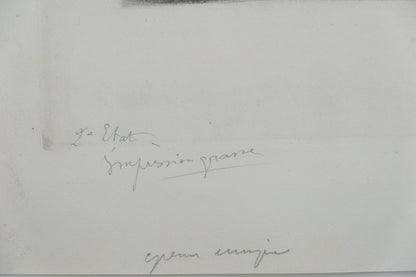 2e Etat -
impression grasse
epreuve unique